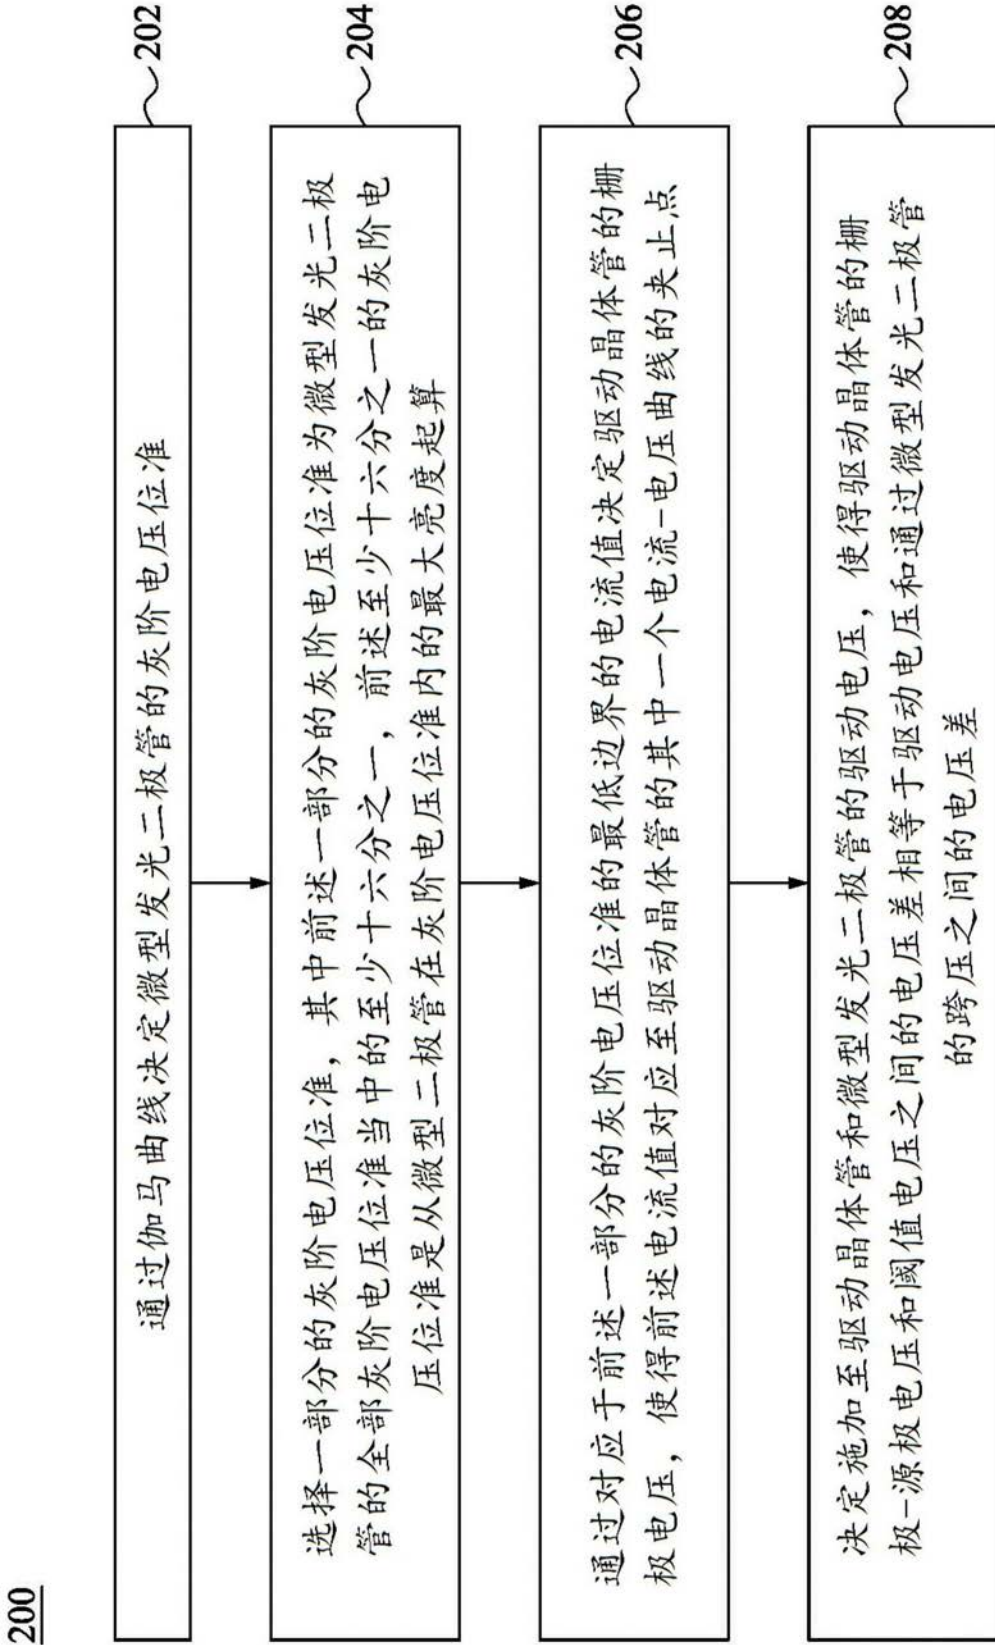 200
202
通过伽马曲线决定微型发光二极管的灰阶电压位准
204
选择一部分的灰阶电压位准，其中前述一部分的灰阶电压位准为微型发光二极
管的全部灰阶电压位准当中的至少十六分之一，前述至少十六分之一的灰阶电
压位准是从微型二极管在灰阶电压位准内的最大亮度起算
206
通过对应于前述一部分的灰阶电压位准的最低边界的电流值决定驱动晶体管的栅
极电压，使得前述电流值对应至驱动晶体管的其中一个电流-电压曲线的夹止点
208
决定施加至驱动晶体管和微型发光二极管的驱动电压，使得驱动晶体管的栅
极-源极电压和阈值电压之间的电压差相等于驱动电压和通过微型发光二极管
的跨压之间的电压差